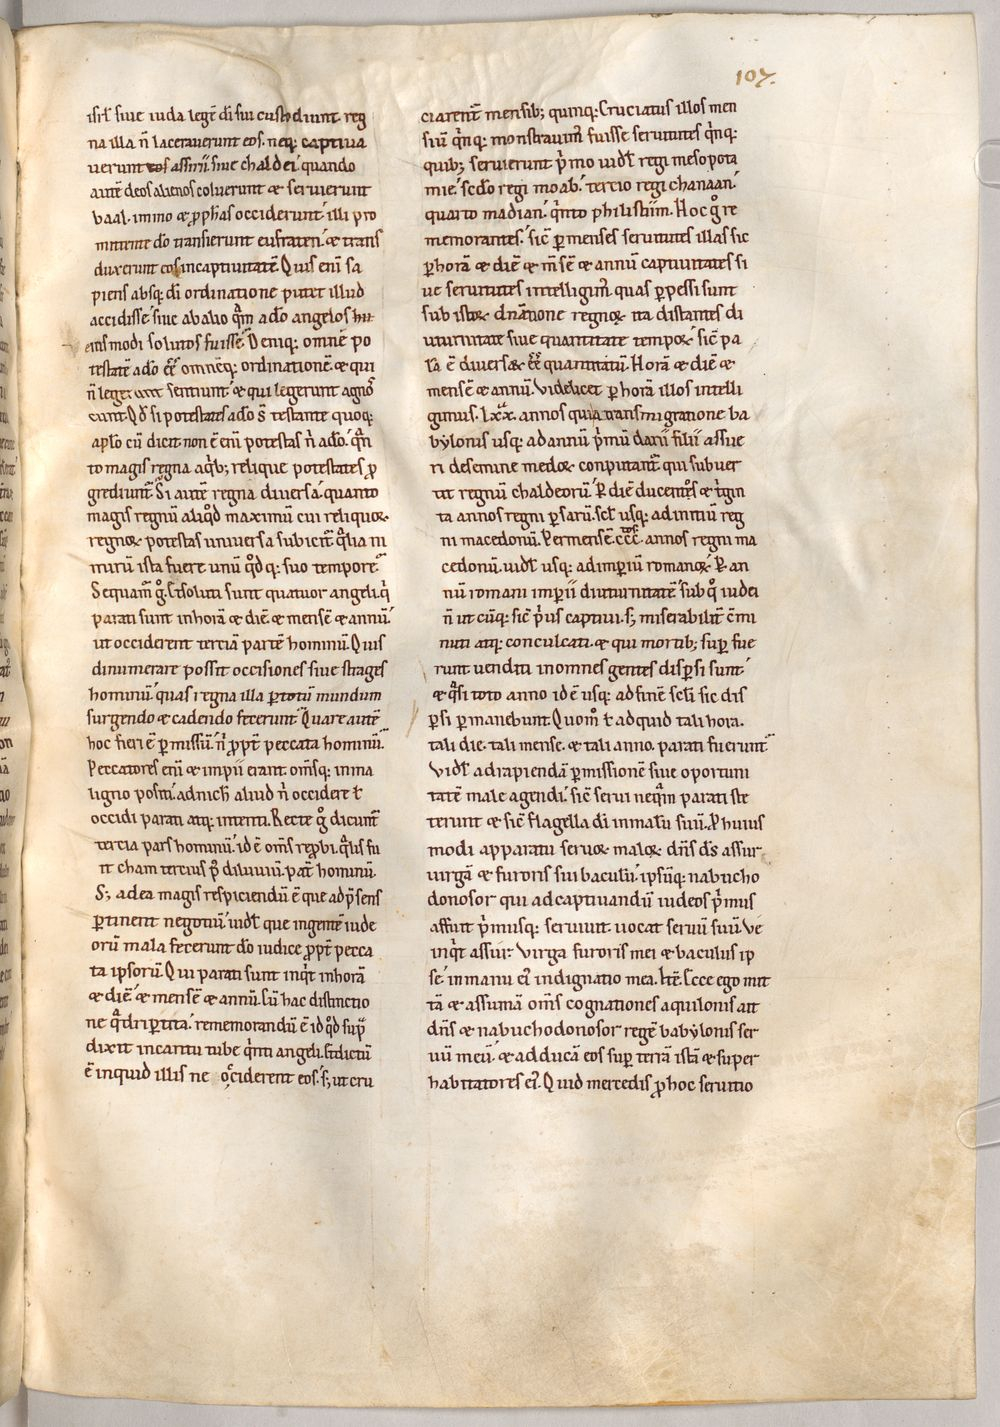 107.
isrl̄ siue iuda legē di sui custodiunt. reg
na illa n̄ lacerauerunt eos. neq; captiua
uerunt eos assirii. siue chaldei. quando
autē deos alienos coluerunt & seruierunt
baal. immo & ꝓphas occiderunt. illi pro
mittente dō transierunt eufraten. & trans
duxerunt eos in captiuitatē. Quis eni sa
piens absq; di ordinatione putet illud
accidisse. siue ab alio quā a dō angelos hu
eiusmodi solutos fuisse. Deniq; omnē po
testatē a dō eē̄ omnēq; ordinationē. & qui
n̄ legerunt sentiunt. & qui legerunt agno
scunt. Qd̄ si potestates a dō s̄ testante quoq;
aplo cū dicit non ē eni potestas n̄ a dō. qn̄
to magis regna a qb; relique potestates ꝓ
grediuntꝛ. Si autē regna diuersa. quanto
magis regnū aliqd̄ maximū cui reliquoꝝ
regnoꝝ potestas uniuersa subicitꝛ. Qualia ni
mirū ista fuere unū qd̄q; suo tempore.
Sequamꝛ ḡ. Et soluti sunt quatuor angeli. q
parati sunt in horā & diē & mensē & annū.
ut occiderent terciā partē hominū. Quis
dinumerare possit occisiones siue strages
hominū. quas regna illa ꝑ totū mundum
surgendo & cadendo fecerunt. Quare autē
hoc fieri ē ꝑmissū. n̄ ꝓptꝛ peccata hominū.
Peccatores eni & impii erant. om̄sq; in ma
ligno positi. ad nich̄ aliud n̄ occidere ł
occidi parati atq; intenti. Recte ḡ dicuntꝛ
tercia pars hominū. id ē om̄s reprobi. qualis fu
it cham tercius p̄ diluuiū. patꝛ hominū.
S; ad ea magis respiciendū ē que ad p̄sens
ꝑtinent negotiū. uidł que ingentē iude
orū mala fecerunt dō iudice ꝓptꝛ pecca
ta ipsorū. Qui parati sunt inqt in horā
& diē. & mensē & annū. Cū hac distinctio
ne qdriꝑtita. rememorandū ē id qd̄ sup̄
dixit in cantu tube qn̄ti angeli. Et dictū
ē inquid illis ne occiderent eos. s; ut cru
ciarentꝛ mensib; quinq;. Cruciatus illos men
siū qn̄q; monstrauimꝰ fuisse seruitutes qn̄q;
quib; seruierunt p̄mo uidł regi mesopota
mie. scd̄o regi moab. tercio regi chanaan.
quarto madian. qn̄to philistiim. Hoc ḡ re
memorantes. sic̄ ꝑ menses seruitutes illas sic
ꝑ horā & diē & m̄sē & annū captiuitates si
ue seruitutes intelligimꝰ. quas ꝑpessi sunt
sub istoꝝ dn̄atione regnoꝝ. ita distantes di
uturnitate siue quantitate tempoꝝ. sic̄ pa
rła ē diuersaꝝ eē̄ quantitatū. Horā & diē &
mensē & annū. Videlicet ꝑ horā illos intelli
gimus. lxx. annos qui a transmigratione ba
bylonis usq; ad annū p̄mū darii filii assue
ri de semine medoꝝ conputantꝛ qui subuer
tit regnū chaldeorū. Ꝑ diē ducentos & tgin
ta annos regni ꝑsarū. scł usq; ad initiū reg
ni macedonū. Per mensē. ccc. annos regni ma
cedonū. uidł usq; ad imperiū romanoꝝ. Ꝑ an
nū romani imperii diuturnitatē. sub qo iudei
n̄ ut cūq; sic̄ p̄us captiui. s; miserabilitꝛ c̄mi
nuti atq; conculcati. & qui mortib; suꝑ fue
runt uenditi in omnes gentes dispersi sunt.
& qsi toto anno id ē usq; ad finē scł̄i sic dis
persi ꝑmanebunt. Quom̄ ł ad quid tali hora.
tali die. tali mense. & tali anno. parati fuerunt.
Vidł ad rapiendā ꝑmissionē siue oportuni
tatē male agendi. sic̄ serui neqm̄ parati ste
terunt & sic̄ flagella di in masū suū. Et huius
modi apparatu seruoꝝ maloꝝ dn̄s d̄s assur
uirgā & furoris sui baculū. ipsūq; nabucho
donosor qui ad captiuandū iudeos p̄mus
affuit p̄musq; seruiuit. uocat seruū suū. Ve
inqt assur. Virga furoris mei & baculus ip
se. in manu ei indignatio mea. Itē. Ecce ego mit
tā & assumā om̄s cognationes aquilonis ait
dn̄s & nabuchodonosor regē babylonis ser
uū meū. & adducā eos suꝑ terrā istā & super
habitatores ei. Quid mercedis ꝓ hoc seruitio